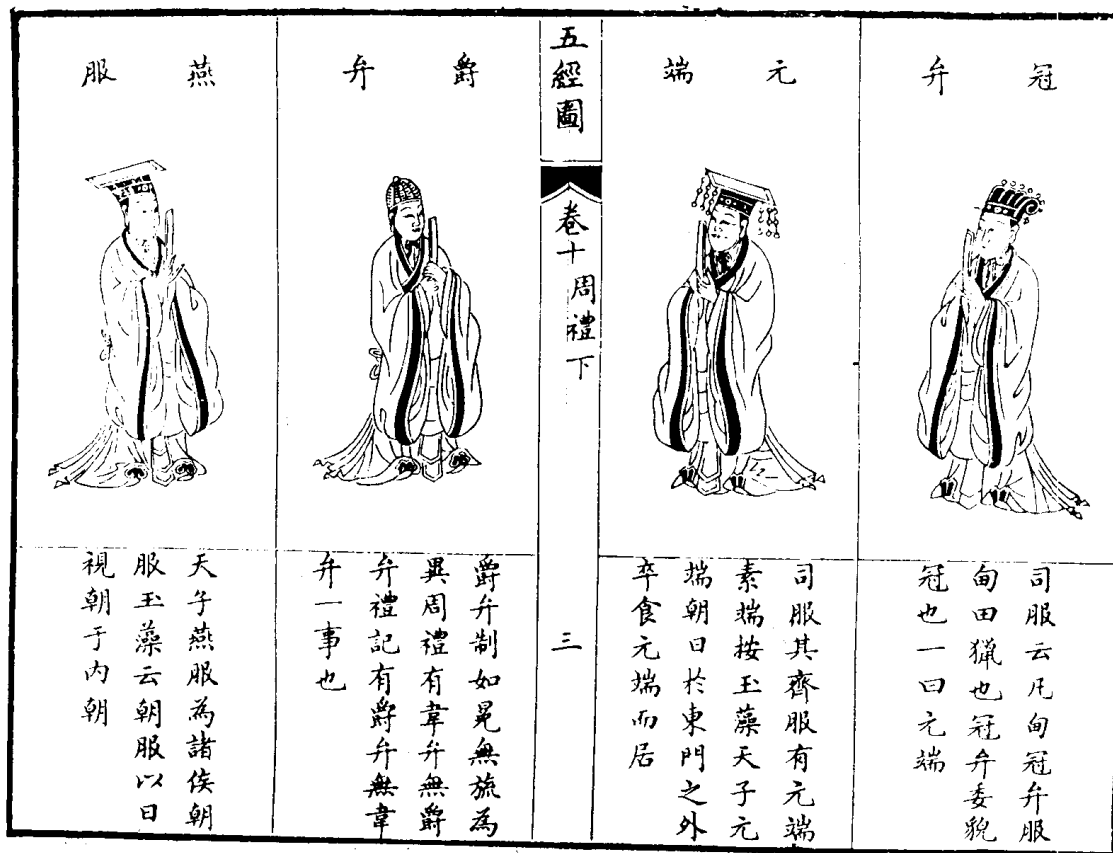 冠弁
司服云凡甸冠弁服
甸田獵也冠弁委貌
冠也一曰元端
元端
司服其齊服有元端
素端按玉藻天子元
端朝日於東門之外
卒食元端而居
五經圖
卷十周禮下
三
爵弁
爵弁制如冕無旒為
異周禮有韋弁無爵
弁禮記有爵弁無韋
弁一事也
燕服
天子燕服為諸侯朝
服玉藻云朝服以日
視朝于內朝